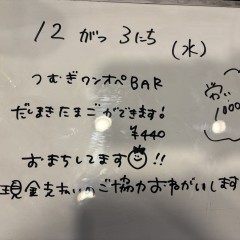 12がつ3にち(水)
つむぎワンオペBAR
だしまきたまごができます!
¥440
おまちしてます!!
現金支払いのご協力おねがいします